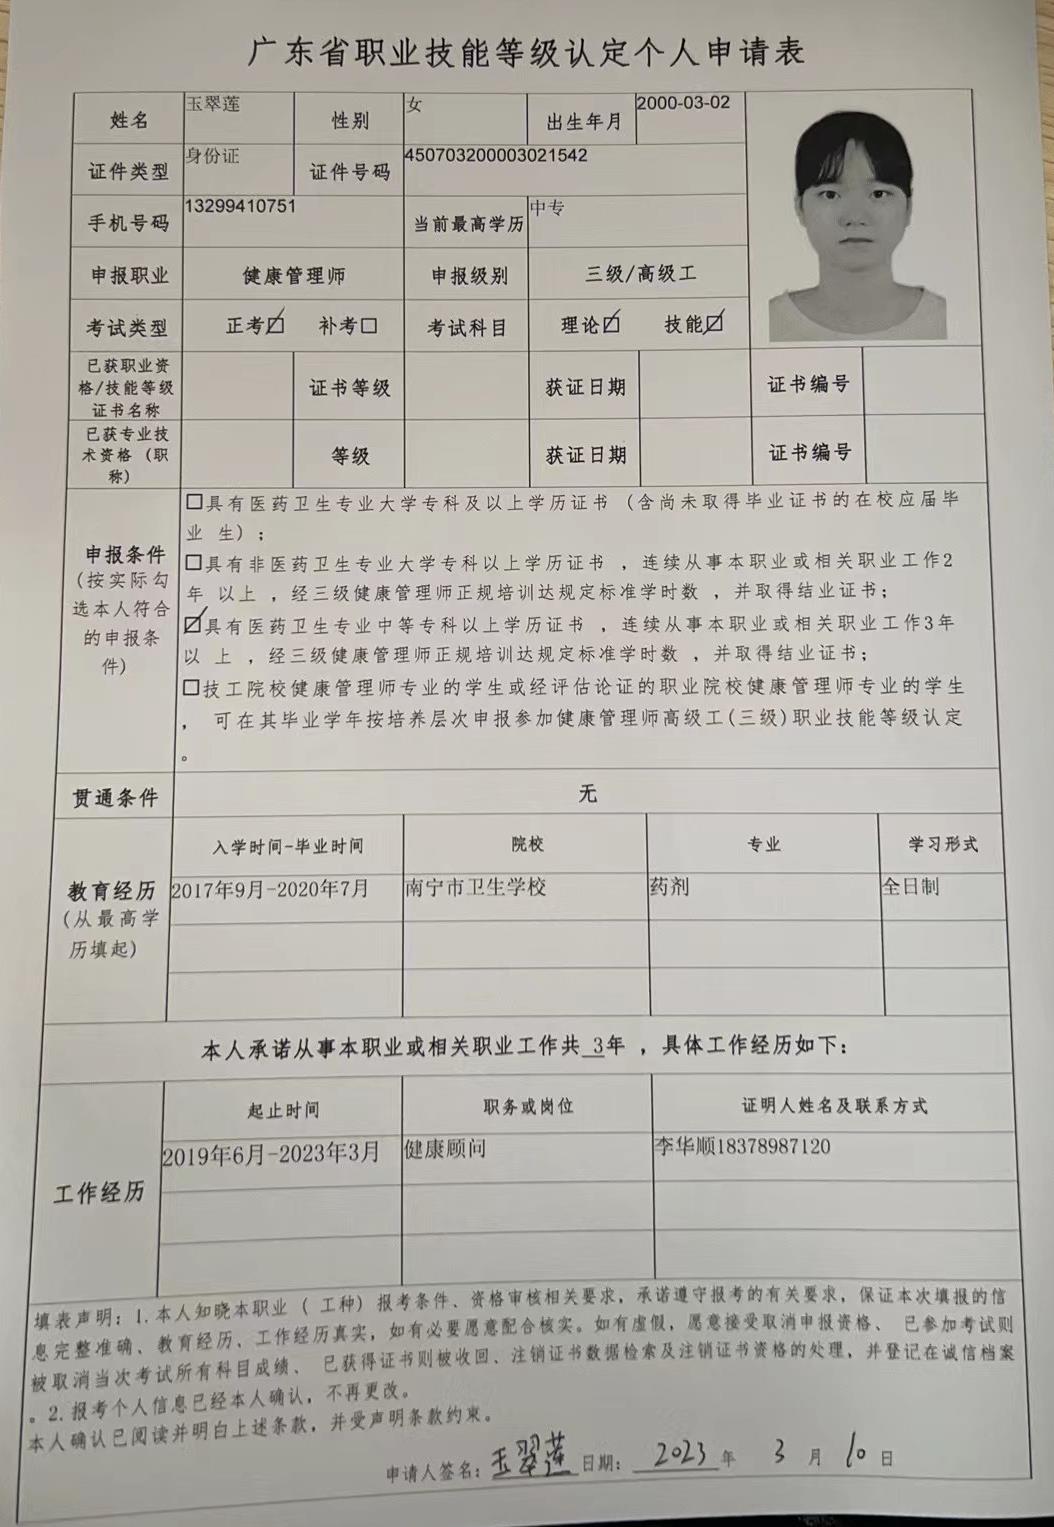 广东省职业技能等级认定个人申请表
姓名 玉翠莲 性别 女 出生年月 2000-03-02
证件类型 身份证 证件号码 450703200003021542
手机号码 13299410751 当前最高学历 中专
申报职业 健康管理师 申报级别 三级/高级工
考试类型 正考☑ 补考☐ 考试科目 理论☑ 技能☑
已获职业资
格/技能等级
证书名称
证书等级 获证日期 证书编号
已获专业技
术资格（职
称）
等级 获证日期 证书编号
申报条件
(按实际勾
选本人符合
的申报条
件)
☐具有医药卫生专业大学专科及以上学历证书（含尚未取得毕业证书的在校应届毕
业 生）；
☐具有非医药卫生专业大学专科以上学历证书 ，连续从事本职业或相关职业工作2
年 以上 ，经三级健康管理师正规培训达规定标准学时数 ，并取得结业证书；
☑具有医药卫生专业中等专科以上学历证书 ，连续从事本职业或相关职业工作3年
以 上 ，经三级健康管理师正规培训达规定标准学时数 ，并取得结业证书；
☐技工院校健康管理师专业的学生或经评估论证的职业院校健康管理师专业的学生
， 可在其毕业学年按培养层次申报参加健康管理师高级工(三级)职业技能等级认定
。
贯通条件 无
教育经历
(从最高学
历填起)
入学时间-毕业时间 院校 专业 学习形式
2017年9月-2020年7月 南宁市卫生学校 药剂 全日制
本人承诺从事本职业或相关职业工作共 3年 ，具体工作经历如下：
工作经历
起止时间 职务或岗位 证明人姓名及联系方式
2019年6月-2023年3月 健康顾问 李华顺18378987120
填表声明：1.本人知晓本职业（ 工种）报考条件、资格审核相关要求，承诺遵守报考的有关要求，保证本次填报的信
息完整准确、教育经历、工作经历真实，如有必要愿意配合核实。如有虚假，愿意接受取消申报资格、 已参加考试则
被取消当次考试所有科目成绩、 已获得证书则被收回、注销证书数据检索及注销证书资格的处理，并登记在诚信档案
。2.报考个人信息已经本人确认，不再更改。
本人确认已阅读并明白上述条款，并受声明条款约束。
申请人签名：玉翠莲 日期： 2023 年 3 月 10 日